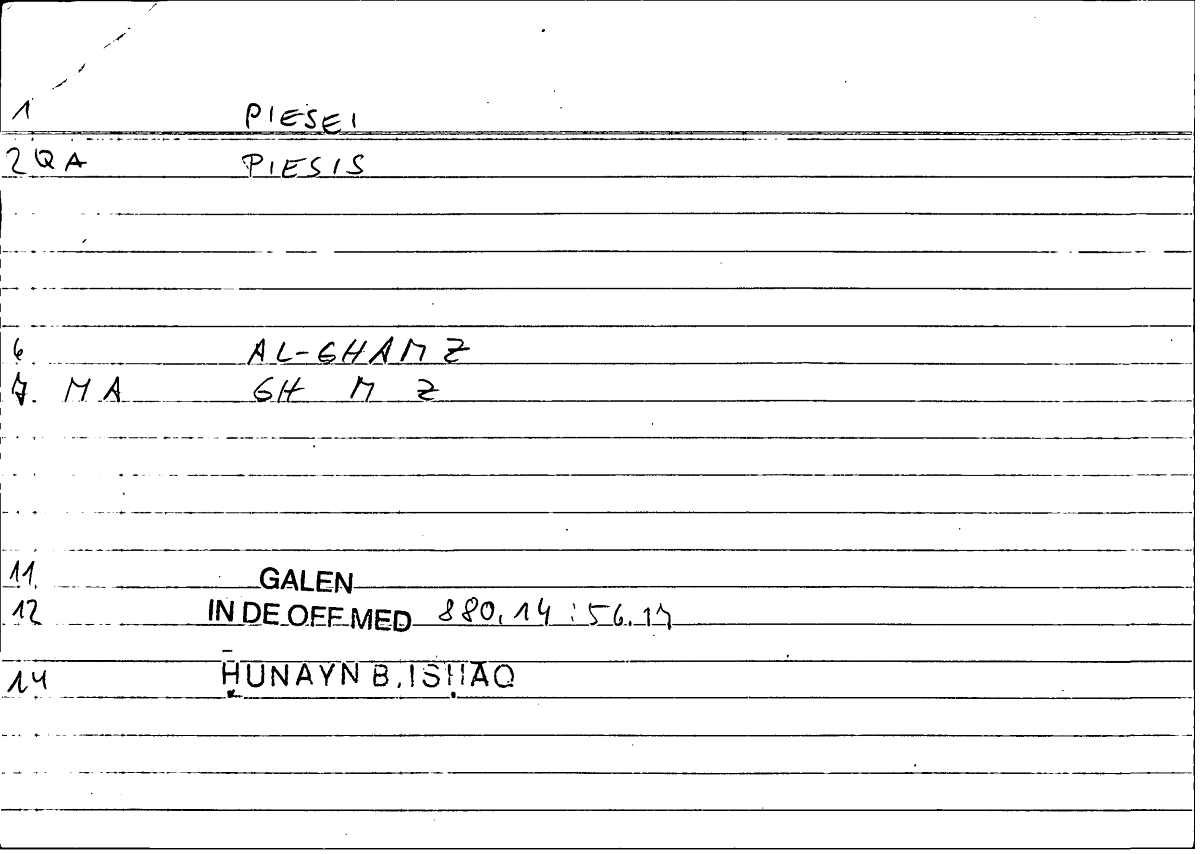 1 PIESEI
2 QA PIESIS
6. AL-GHAMZ
7. MA GH M Z
11. GALEN
12 IN DE OFF MED 880.14 : 56.17
14 HUNAYN B. ISHAQ